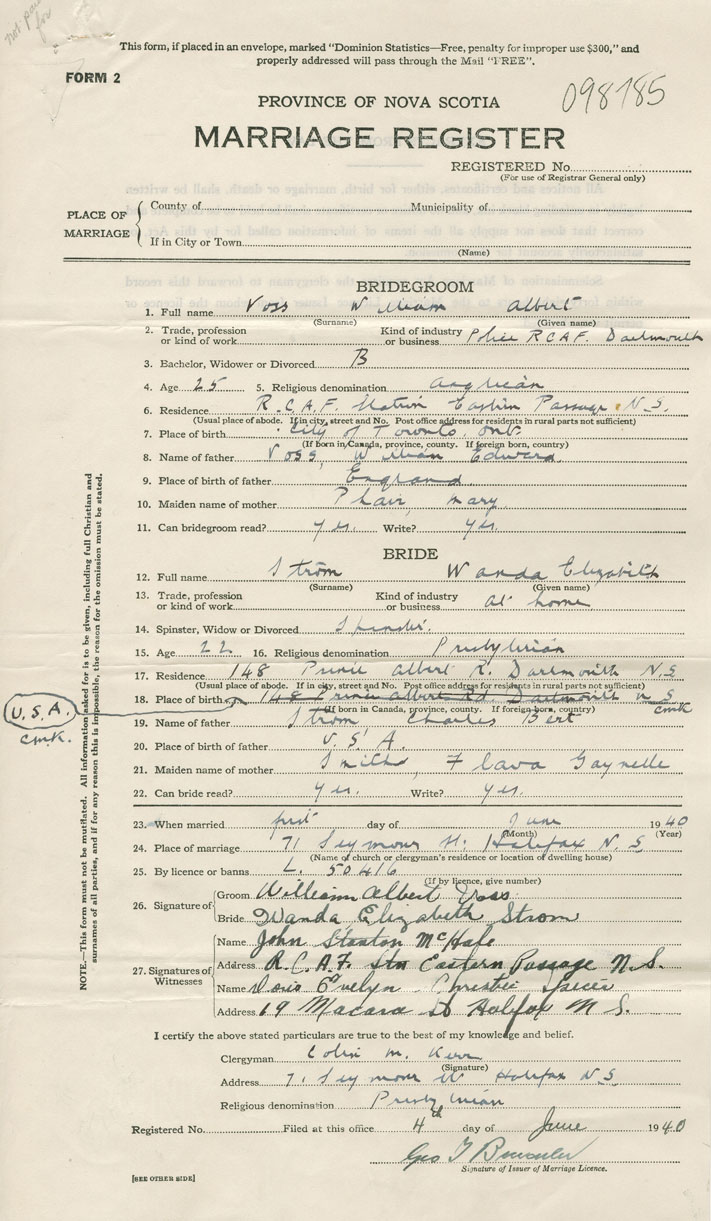 This form, if placed in an envelope, marked "Dominion Statistics—Free, penalty for improper use $300," and
properly addressed will pass through the Mail "FREE".
FORM 2
098785
PROVINCE OF NOVA SCOTIA
MARRIAGE REGISTER
REGISTERED No.
(For use of Registrar General only)
PLACE OF MARRIAGE
County of Municipality of
If in City or Town
(Name)
BRIDEGROOM
1. Full name Voss William Albert
(Surname) (Given name)
2. Trade, profession or kind of work Kind of industry or business Police R.C.A.F. Dartmouth
3. Bachelor, Widower or Divorced B
4. Age 25 5. Religious denomination Anglican
6. Residence R.C.A.F. Station Eastern Passage N.S.
(Usual place of abode. If in city, street and No. Post office address for residents in rural parts not sufficient)
7. Place of birth City of Toronto Ont.
(If born in Canada, province, county. If foreign born, country)
8. Name of father Voss, William Edward
9. Place of birth of father England
10. Maiden name of mother Phair, Mary
11. Can bridegroom read? yes. Write? yes.
BRIDE
12. Full name Strom Wanda Elizabeth
(Surname) (Given name)
13. Trade, profession or kind of work Kind of industry or business at home
14. Spinster, Widow or Divorced Spinster.
15. Age 22 16. Religious denomination Presbyterian
17. Residence 148 Prince Albert R. Dartmouth N.S
(Usual place of abode. If in city, street and No. Post office address for residents in rural parts not sufficient)
18. Place of birth 148 Prince Albert Rd. Dartmouth N S
U.S.A. cmk.
cmk
(If born in Canada, province, county. If foreign born, country)
19. Name of father Strom Charles Bert
20. Place of birth of father U.S.A.
21. Maiden name of mother Smith, Flava Gaynelle
22. Can bride read? yes. Write? yes.
23. When married first day of June 1940
(Month) (Year)
24. Place of marriage 71 Seymour St. Halifax N.S
(Name of church or clergyman's residence or location of dwelling house)
25. By licence or banns L. 50416
(If by licence, give number)
26. Signature of
Groom William Albert Voss
Bride Wanda Elizabeth Strom
27. Signatures of Witnesses
Name John Stanton McHale
Address R.C.A.F. Stn Eastern Passage N.S.
Name Doris Evelyn Christie Spicer
Address 19 Macara St Halifax N.S.
I certify the above stated particulars are true to the best of my knowledge and belief.
Clergyman Colin M. Kerr
(Signature)
Address 71 Seymour St Halifax N.S
Religious denomination Presbyterian
Registered No. Filed at this office 4th day of June 1940
Geo T
Signature of Issuer of Marriage Licence.
[SEE OTHER SIDE]
NOTE.—This form must not be mutilated. All information asked for is to be given, including full Christian and
surnames of all parties, and if for any reason this is impossible, the reason for the omission must be stated.